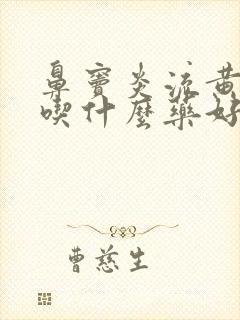 鼻竇炎流黃
喫什麼藥好
曹慈生